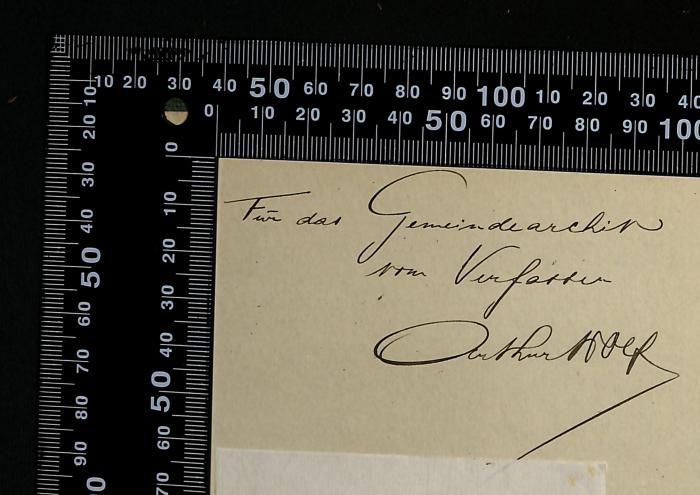 10 20 30 40 50 60 70 80 90 100 10 20 30 40
0 10 20 30 40 50 60 70 80 90 100
10 20 30 40 50 60 70 80 90
0 10 20 30 40 50 60 70
Für das Gemeindearchiv
vom Verfasser
Arthur Wolf